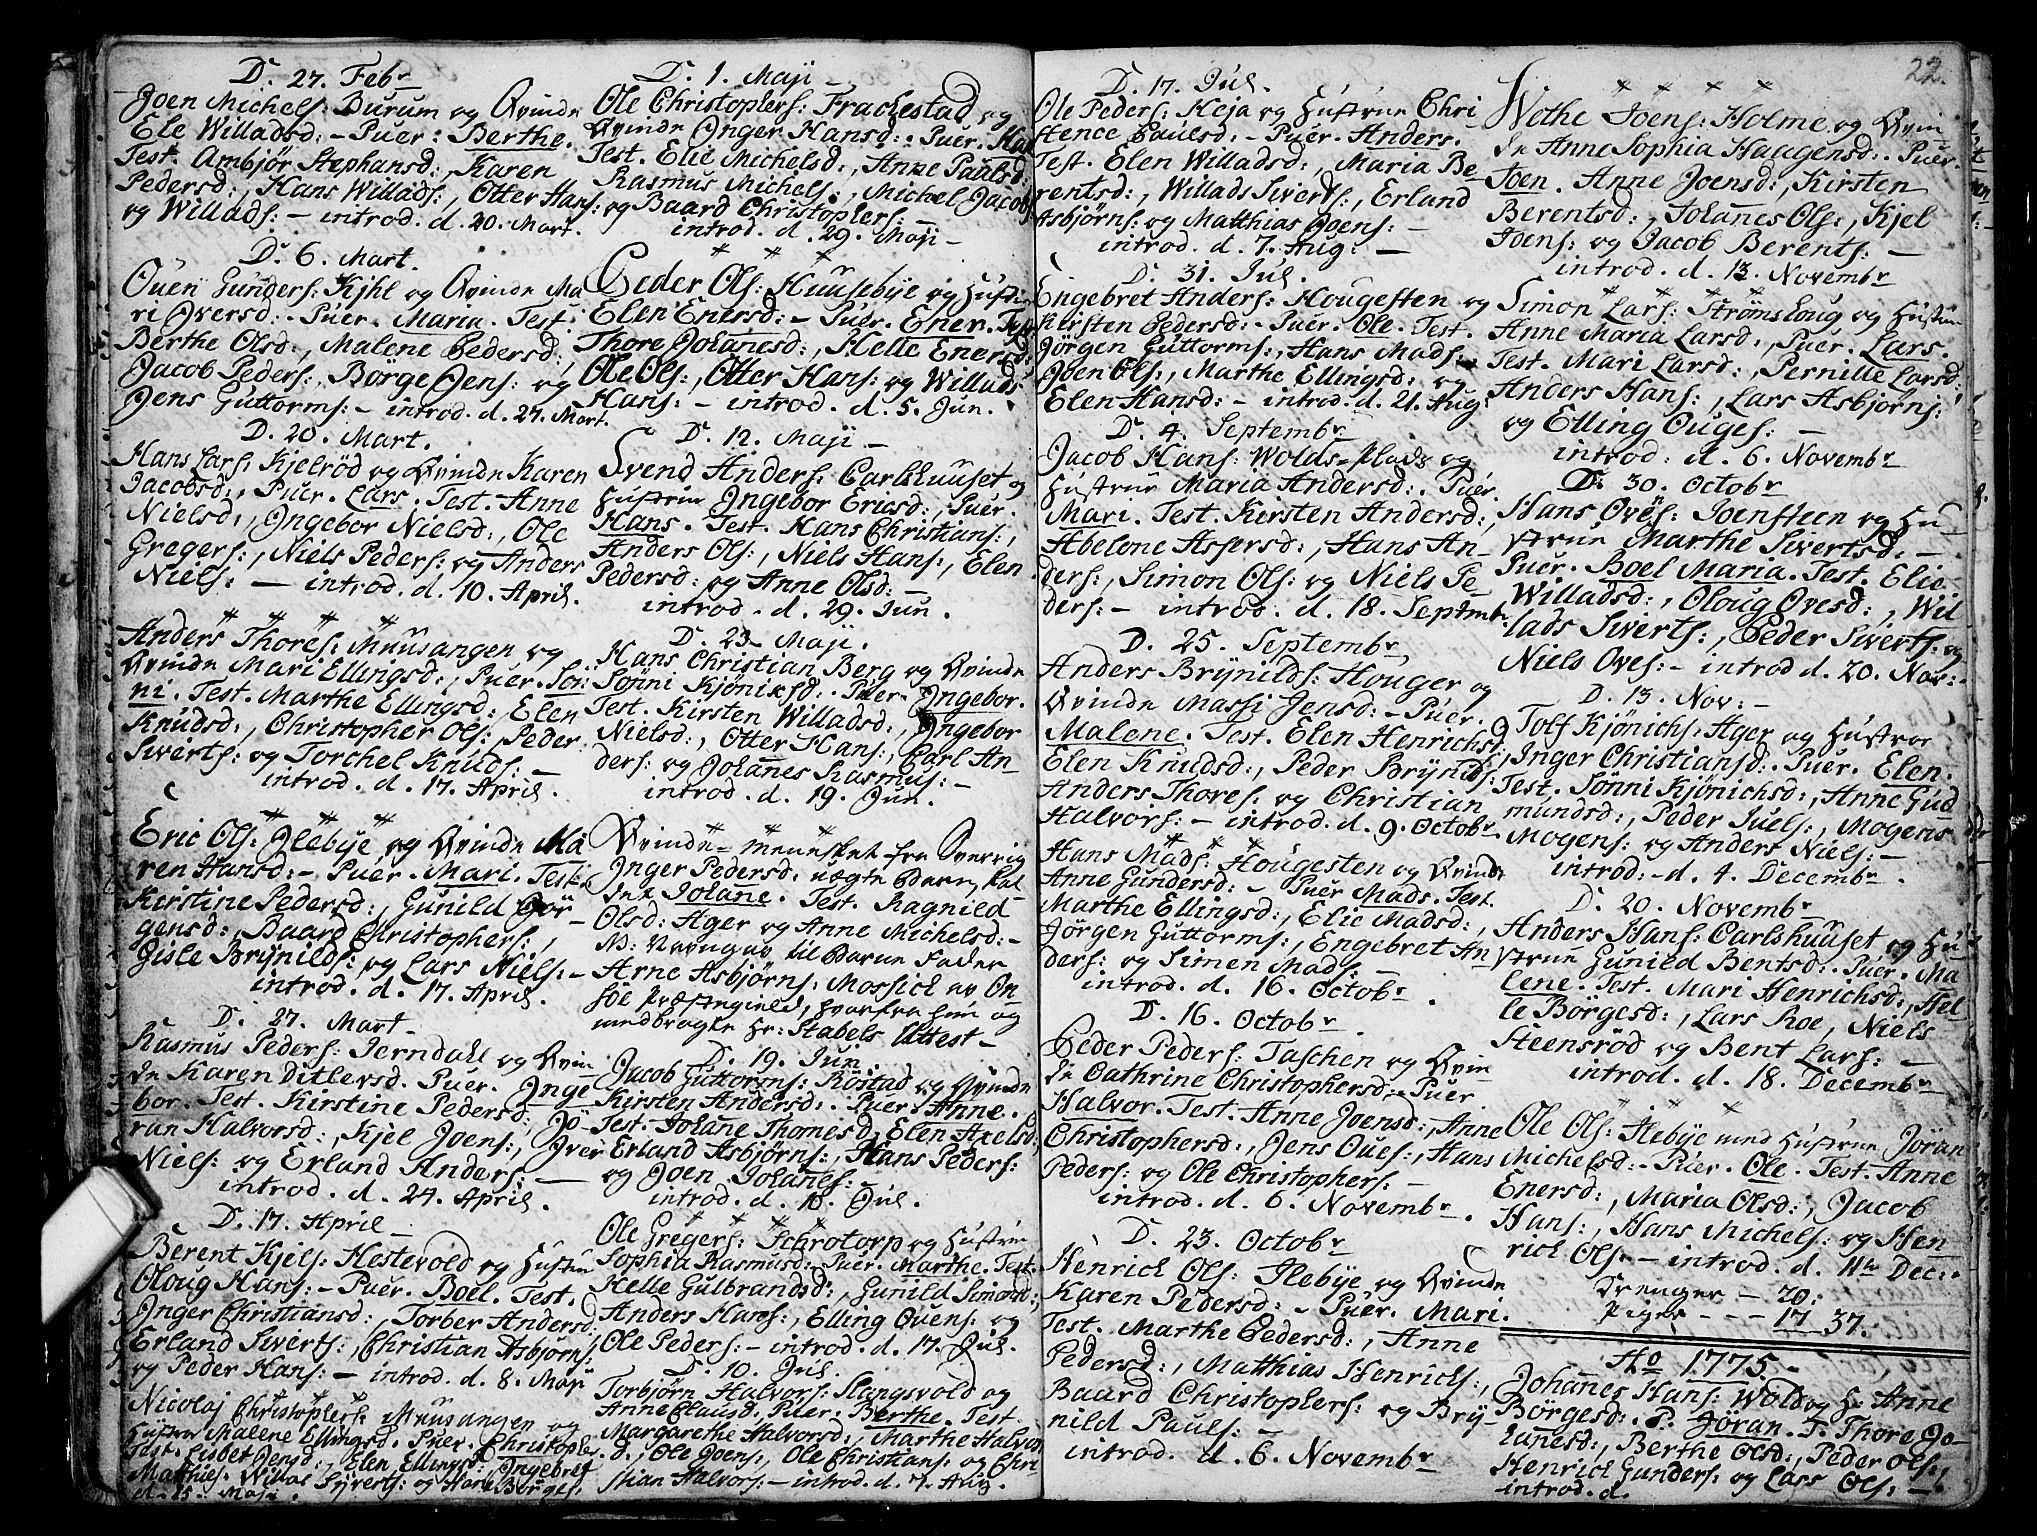 D. 27. Febr
Joen Michels: Burum og Qvinde
Ele Willadsd: - Puer: Berthe.
Test. Ambjør Stephansd:, Karen
Pedersd:, Hans Willads:, Otter Hans:
og Willads: - introd. d. 20. Mart.
D. 6. Mart.
Ouen Gunders: Kjhl og Qvinde Ma
ri Iversd: - Puer. Maria. Test:
Berthe Olsd:, Malene Pedersd:,
Jacob Peders:, Børge Jens: og
Jens Guttorms: - introd. d. 27. Mart.
D. 20. Mart.
Hans Lars: Kjelrød og Qvinde Karen
Jacobsd:, Puer. Lars. Test. Anne
Nielsd:, Ingebor Nielsd:, Ole
Gregers:, Niels Peders: og Anders
Niels: - introd. d. 10. April.
Anders Thores: Muusangen og
Qvinde Mari Ellingsd:, Puer. Søn:
ni. Test. Marthe Ellingsd:, Elen
Knudsd:, Christopher Ols:, Peder
Siverts: og Torchel Knuds: -
introd. d. 17. April.
Eric Ols: Ilebÿe og Qvinde Ma
ren Hansd: - Puer. Mari. Test.
Kirstine Pedersd:, Gunild Jör
gensd:, Baard Christophers:,
Gisle Brÿnilds: og Lars Niels: -
introd. d. 17. April.
D. 27. Mart.
Rasmus Peders: Jerndahl og Qvin
de Karen Ditlevsd. Puer. Inge
bor. Test. Kirstine Pedersd:, Jö-
ran Halvorsd:, Kjel Joens:, Iver
Niels: og Erland Anders: -
introd. d. 24. April.
D. 17. April -
Berent Kjels: Hestevold og Hustru
Oloug Hans: - Puer. Boel. Test.
Inger Christiansd:, Torber Andersd:
Erland Siverts:, Christian Asbjørns:
og Peder Hans: - introd. d. 8. Maji
Nicolaj Christophers: Muusangen og
Hustru Malene Ellingsd. Puer. Christopher
Test. Lisbet Jensd:, Elen Ellingsd:, Ingebret
Mathies: Willas Sÿverts: og Hans Børges:
d. 15. Maji.
D. 1. Maji -
Ole Christophers: Frachestad og
Qvinde Inger Hansd:. Puer. Han
Test. Elie Michelsd:, Anne Paulsd:
Rasmus Michels:, Michel Jacobs:
og Baard Christophers: -
introd. d. 29. Maji -
Peder Ols: Huusebÿe og Hustru
Elen Enersd: - Puer. Ener. Test
Thore Johanesd:, Helle Enersd:,
Ole Ols:, Otter Hans: og Willads
Hans: - introd. d. 5. Jun.
D. 12. Maji -
Svend Anders: Carlshuuset og
Hustrue Ingebor Ericsd:, Puer.
Hans. Test. Hans Christians:,
Anders Ols:, Niels Hans:, Elen
Pedersd: og Anne Olsd: -
introd. d. 29. Jun.
D. 23. Maji.
Hans Christian Berg og Qvinde
Sönni Kjöniksd:. Puer. Ingebor.
Test. Kirsten Willadsd:, Ingebor
Nielsd:, Otter Hans:, Carl An-
ders: og Johanes Rasmus: -
introd. d. 19. Jun.
Qvinde-mennesket fra Sverrig
Inger Pedersd: uægte Barn, kal
det Johane. Test. Ragnild
Olsd: Ager og Anne Michelsd: -
Arne Asbjørns: Mossick av On-
söe Præstegield, hvorfra hun og
medbragte Hr: Stabels Attest -
D. 19. Jun.
Jacob Guttorms: Röstad og Qvinde
Kirsten Andersd:. Puer. Anne.
Test: Johane Thomesd:, Elen Axelsd:,
Erland Asbjørns:, Hans Peders:
og Joen Johanes: -
introd. d. 10. Jul.
Ole Gregers: Schrotorp og Hustru
Sophia Rasmusd: Puer. Marthe. Test.
Helle Gulbrandsd:, Gunild Simonsd:,
Anders Hans:, Elling Ouens: og
Ole Peders: - introd. d. 17. Jul.
D. 10. Jul.
Torbjørn Halvors: Slangsvold og
Anne Clausd: Puer. Berthe. Test.
Margarethe Halvorsd:, Marthe Halvor
d:, Ole Joens:, Ole Christians: og Chri-
stian Halvors: - introd. d. 7. Aug.
D. 17. Jul.
Ole Peders: Heja og Hustrue Chri-
stence Paulsd: - Puer. Anders.
Test. Elen Willadsd:, Maria Be-
rentsd:, Willads Siverts:, Erland
Asbjørns: og Matthias Joens: -
introd. d. 7. Aug: -
D. 31. Jul.
Engebret Anders: Hougesten og
Kirsten Pedersd: - Puer. Ole. Test.
Jørgen Guttorms:, Hans Mads:,
Joen Ols:, Marthe Ellingsd: og
Elen Hansd: - introd. d. 21. Aug:
D. 4. Septembr
Jacob Hans: Wolds-plads og
Hustrue Maria Andersd:. Puer.
Mari. Test. Kirsten Andersd:,
Abelone Aspersd:, Hans An-
ders:, Simon Ols: og Niels Pe-
ders: - introd. d. 18. Septmbr
D. 25. Septembr
Anders Brÿnilds: Houger og
Qvinde Massi Jensd: - Puer.
Malene. Test. Elen Henrichsd:
Elen Knudsd:, Peder Brÿnilds:
Anders Thores: og Christian
Halvors: - introd. d. 9. Octobr.
Hans Mads: Hougesten og Qvinde
Anne Gundersd: - Puer Mads. Test.
Marthe Ellingsd:, Elie Madsd:,
Jørgen Guttorms:, Engebret An-
ders: og Simen Mads: -
introd. d. 16. Octobr.
D. 16. Octobr.
Peder Peders: Taschen og Qvin
de Cathrine Christophersd:. Puer
Halvor. Test. Anne Joensd:, Anne
Christophersd:, Jens Oues:, Hans
Peders: og Ole Christophers: -
introd. d. 6. Novembr.
D. 23. Octobr
Henrich Ols: Ilebÿe og Qvinde
Karen Pedersd: - Puer. Mari.
Test. Marthe Pedersd:, Anne
Pedersd:, Matthias Henrichs:,
Baard Christophers: og Brÿ-
nild Pauls: -
introd. d. 6. Novembr
22.
Wethe Joens: Holme og Qvin
de Anne Sophia Haagensd:. Puer.
Joen. Anne Joensd:, Kirsten
Berentsd:, Johanes Ols:, Kjel
Joens: og Jacob Berents: -
introd. d. 13. Novembr
Simon Lars: Strømsloug og Hustru
Anne Maria Larsd:, Puer. Lars.
Test. Mari Larsd:, Pernille Larsd:
Anders Hans:, Lars Asbjørns:
og Elling Ouges: -
introd. d. 6. Novembr
D. 30. Octobr
Hans Oves: Soensteen og Hu
strue Marthe Sivertsd. -
Puer. Boel Maria. Test. Elie
Willadsd:, Oloug Ovesd:, Wil
lads Siverts:, Peder Siverts: og
Niels Oves: - introd d. 20. Nov: -
D. 13. Nov: -
Tolf Kjönichs: Ager og Hustrue
Inger Christiansd:. Puer. Elen.
Test. Sönni Kjönichsd:, Anne Gud
mundsd:, Peder Juels:, Mogens
Mogens: og Anders Niels: -
introd: - d. 4. Decembr.
D. 20. Novembr
Anders Hans: Carlshuuset og Hu
strue Gunild Bentsd:. Puer. Ma
lene. Test. Mari Henrichsd:, Hel
le Börgesd:, Lars Roe, Niels
Steensröd og Bent Lars: -
introd. d. 18. Decembr
Ole Ols: Ilebÿe med Hustrue Jöran
Michelsd: - Puer. Ole. Test. Anne
Enersd:, Maria Olsd:, Jacob
Hans:, Hans Michels: og Hen
rich Ols: - introd. d. 11te Dec: -
Drenger - 20:
Piger - - - 17 37.
Ao 1775.
Johanes Hans: Wold og H: Anne
Börgesd:. P. Jöran. T. Thore Jo-
hanesd:, Berthe Olsd:, Peder Ols:,
Henrich Gunders: og Lars Ols: -
introd. d.